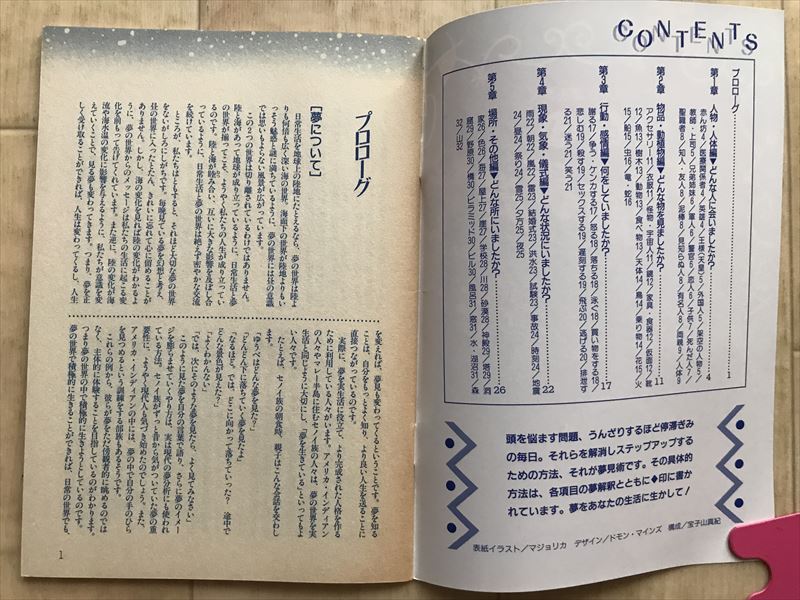 CONTENTS
プロローグ……1
第1章 人物・人体編▼どんな人に会いましたか?……4
赤ん坊4/医療関係者4/英雄4/王様(天皇)5/外国人5/架空の人物5/
教師・上司5/兄弟姉妹6/軍人6/警官6/恋人6/子供7/死んだ人7/
聖職者8/知人・友人8/泥棒8/見知らぬ人8/有名人8/両親9/人体9
第2章 物品・動植物編▼どんな物を見ましたか?……11
アクセサリー11/衣服11/怪物・宇宙人11/鏡12/家具・食器12/仮面12/靴
12/魚13/樹木13/動物13/食べ物13/天体14/鳥14/乗り物14/花15/火
15/船15/虫16/竜・蛇16
第3章 行動・感情編▼何をしていましたか?……17
謝る17/争う・ケンカする17/怒る18/落ちる18/泳ぐ18/買い物をする18/
悲しむ19/殺す19/セックスする19/遅刻する19/飛ぶ20/逃げる20/排泄す
る21/迷う21/笑う21
第4章 現象・気象・儀式編▼どんな状況にいましたか?……22
雨22/嵐22/風22/雷23/結婚式23/洪水23/試験23/事故24/時刻24/地震
24/昼24/祭り24/雪25/夕方25/夜25
第5章 場所・その他編▼どんな所にいましたか?……26
家26/色26/丘27/屋上27/崖27/学校28/川28/砂漠28/神殿29/塔29/洞
窟29/野原30/橋30/ピラミッド30/ビル30/風呂31/窓31/水・湖沼31/森
32/山32
頭を悩ます問題、うんざりするほど停滞ぎみ
の毎日。それらを解消しステップアップする
ための方法、それが夢見術です。その具体的
方法は、各項目の夢解釈とともに◆印に書か
れています。夢をあなたの生活に生かして!
表紙イラスト/マジョリカ デザイン/ドモン・マインズ 構成/宝子山真紀
プロローグ
[夢について]
日常生活を地球上の陸地にたとえるなら、夢の世界は陸よ
りも何倍も広く深い海の世界。海面下の世界が陸地よりもい
っそう魅惑と謎に満ちているように、夢の世界には昼の意識
では思いもよらない風景が広がっています。
この2つの世界は切り離されているわけではありません。
陸と海があって地球が成り立っているように、日常生活と夢
の世界が揃ってこそ、ようやく私たちの人生が成り立ってい
るのです。陸と海が睦み合い、互いに大きな影響を及ぼし合
っているように、日常生活と夢の世界は絶えず密やかな交流
を続けています。
ところが、私たちはともすると、それほど大切な夢の世界
をないがしろにしがちです。毎晩見ている夢を幻想と考え、
昼の世界に入ったとたん、きれいに忘れて心に留めることが
ありません。しかし、海の変化を見れば陸の変化がわかるよ
うに、夢の世界からのメッセージは私たちの生活に起こる変
化を前もって告げてくれています。また逆に、陸の変化が海
流や海水温の変化に影響を与えるように、私たちが意識を変
えていくことで、見る夢も変わってきます。つまり、夢を正
しく受け取ることができれば、人生は変わってくるし、人生
を変えれば、夢も変わってくるということです。夢を知る
ことは、自分をもっとよく知り、より良い人生を送ることに
直接つながっているのです。
実際に、夢を実生活に役立て、より完成された人格を作る
ために利用している人々がいます。アメリカ・インディアン
の人々やマレー半島に住むセノイ族の人々は、夢の世界を実
生活と同じように大切にし、「夢を生きている」といってもよ
い人々です。
たとえば、セノイ族の朝食時、親子はこんな会話を交わし
ます。
「ゆうべはどんな夢を見た?」
「どんどん下に落ちていく夢を見たよ」
「なるほど。では、どこに向かって落ちていった? 途中で
どんな景色が見えた?」
「よくわかんない」
「では、次にそのような夢を見たら、よく見てみなさい」
このように見た夢を自分の言葉で語り、さらに夢のイメー
ジを膨らませていくやり方は、実は現代の夢分析にも使われ
ている方法。セノイ族がずっと昔から気がついていた夢の重
要性に、ようやく現代人も気づき始めたのでしょう。また、
アメリカ・インディアンの中には、夢の中で自分の手のひら
を見つめるという訓練をする部族もあるそうです。
これらの例から、彼らが夢をただ傍観者的に眺めるのでは
なく、主体的に体験することを目指しているのがわかります。
つまり夢の世界の中で積極的に生きようとしているのです。
夢の世界で積極的に生きることができれば、日常の世界でも、
1